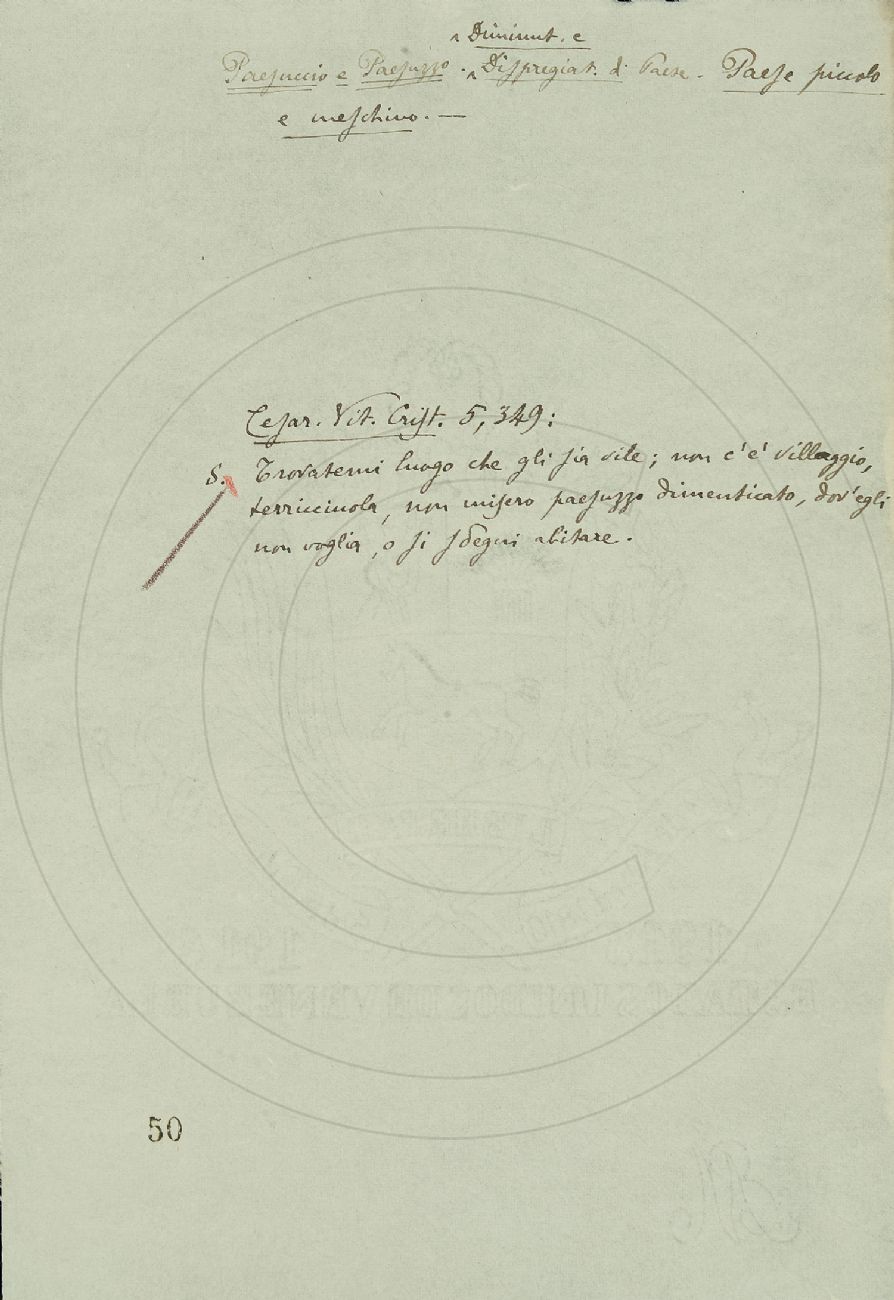 ^ Diminut. e
Paesuccio e Paesuzzo. ^ Dispregiat. di Paese. Paese piccolo
e meschino. —
Cesar. Vit. Crist. 5, 349:
S. Trovatemi luogo che gli sia vile; non c'è villaggio,
terricciuola, non misero paesuzzo dimenticato, dov'egli
non voglia, o si sdegni abitare.
50